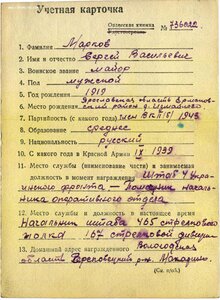 Учетная карточка
Орденская книжка
Удостоверение № 736022
1. Фамилия Марков
2. Имя и отчество Сергей Васильевич
3. Воинское звание майор
4. Пол мужской
5. Год рождения 1919
6. Место рождения Ярославская область
район д.
7. Партийность (с какого года) член ВКП(б) 1943
8. Образование среднее
9. Национальность русский
10. С какого года в Красной Армии IX 1939
11. Место службы (наименование части) и занимаемая
должность в момент награждения Штаб 4 Укра-
инского фронта — помощник началь-
ника оперативного отдела
12. Место службы и должность в настоящее время
Начальник штаба 465 стрелкового
полка 167 стрелковой дивизии
13. Домашний адрес награжденного Вологодская
область Череповецкий р-н
(См. об.)